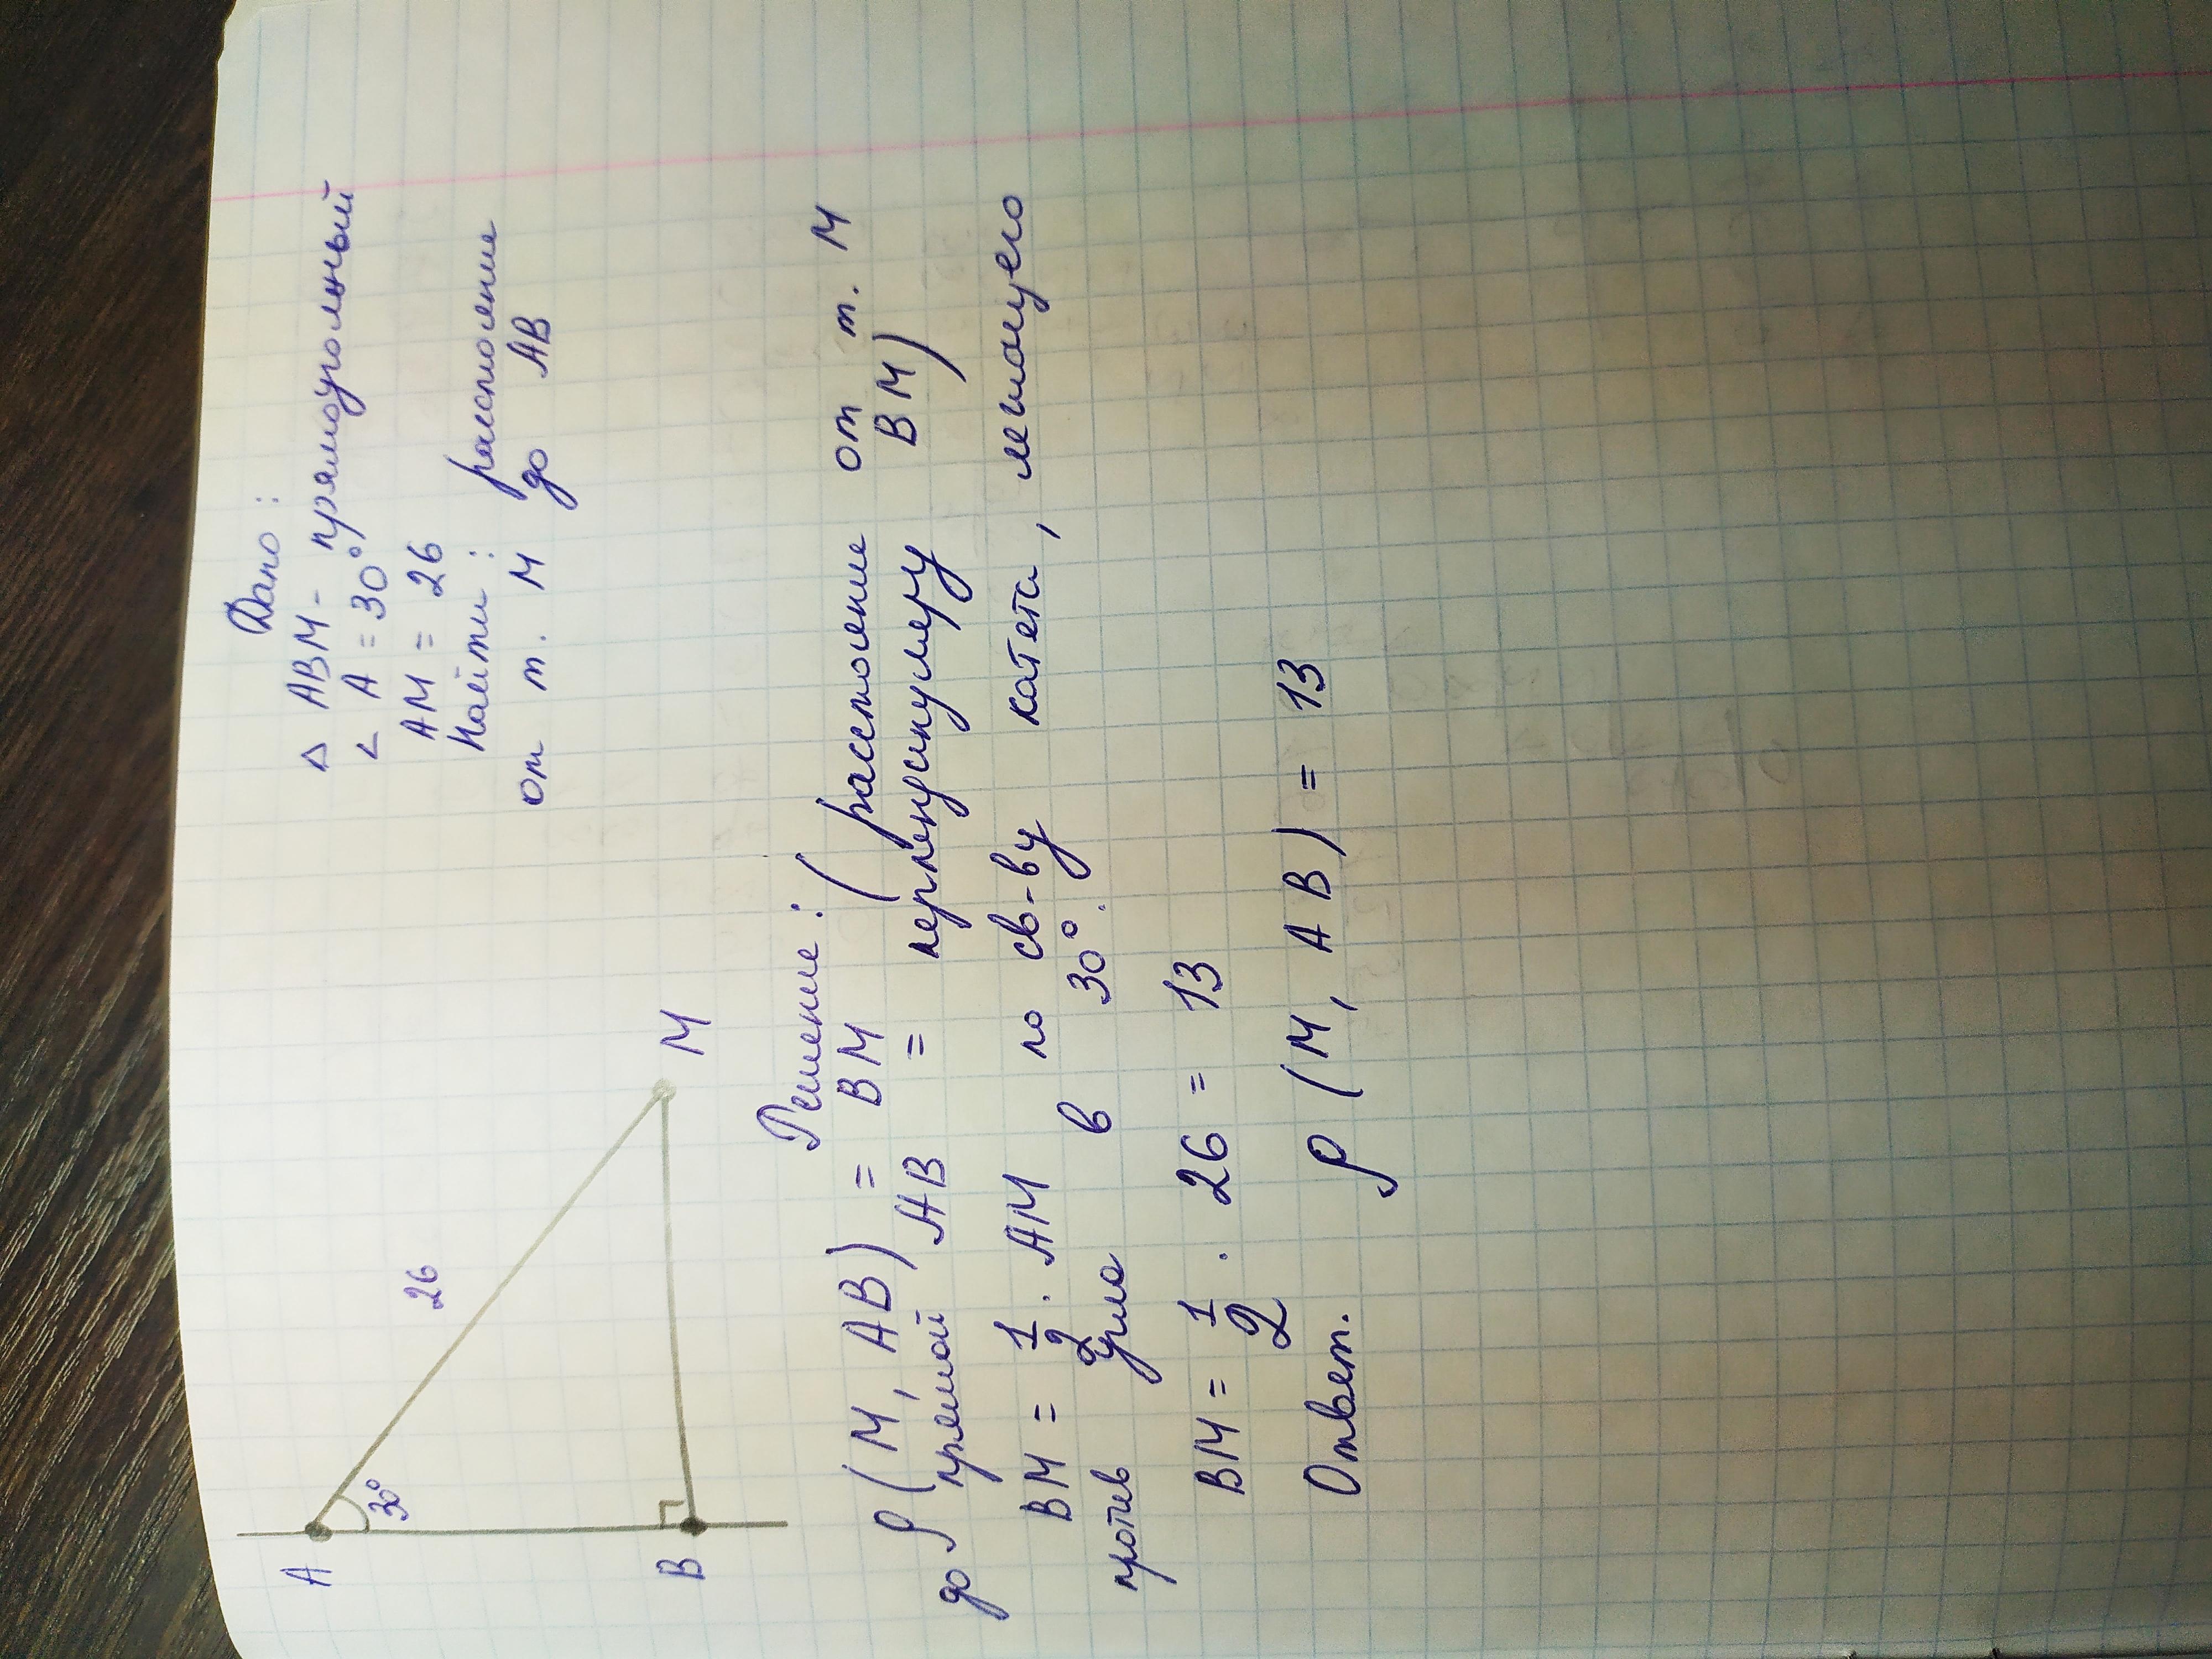 A
30°
26
B
M
Дано:
△ ABM - прямоугольный
∠ A = 30°
AM = 26
Найти: расстояние
от т. M до AB
Решение:
ρ (M, AB) = BM (расстояние от т. M
до прямой AB = перпендикуляру BM)
BM = 1/2 · AM по св-ву катета, лежащего
против угла в 30°.
BM = 1/2 · 26 = 13
Ответ. ρ (M, AB) = 13